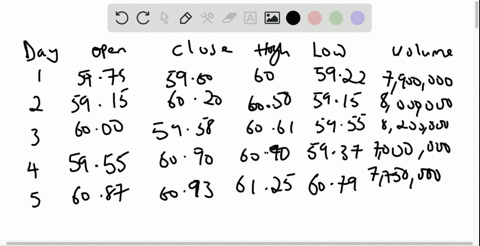 Day open close High Low Volume
1 59.75 59.60 60 59.22 7,900,000
2 59.15 60.20 60.50 59.15 8,000,000
3 60.00 59.58 60.61 59.55 8,200,000
4 59.55 60.90 60.90 59.37 7,000,000
5 60.87 60.93 61.25 60.79 7,750,000